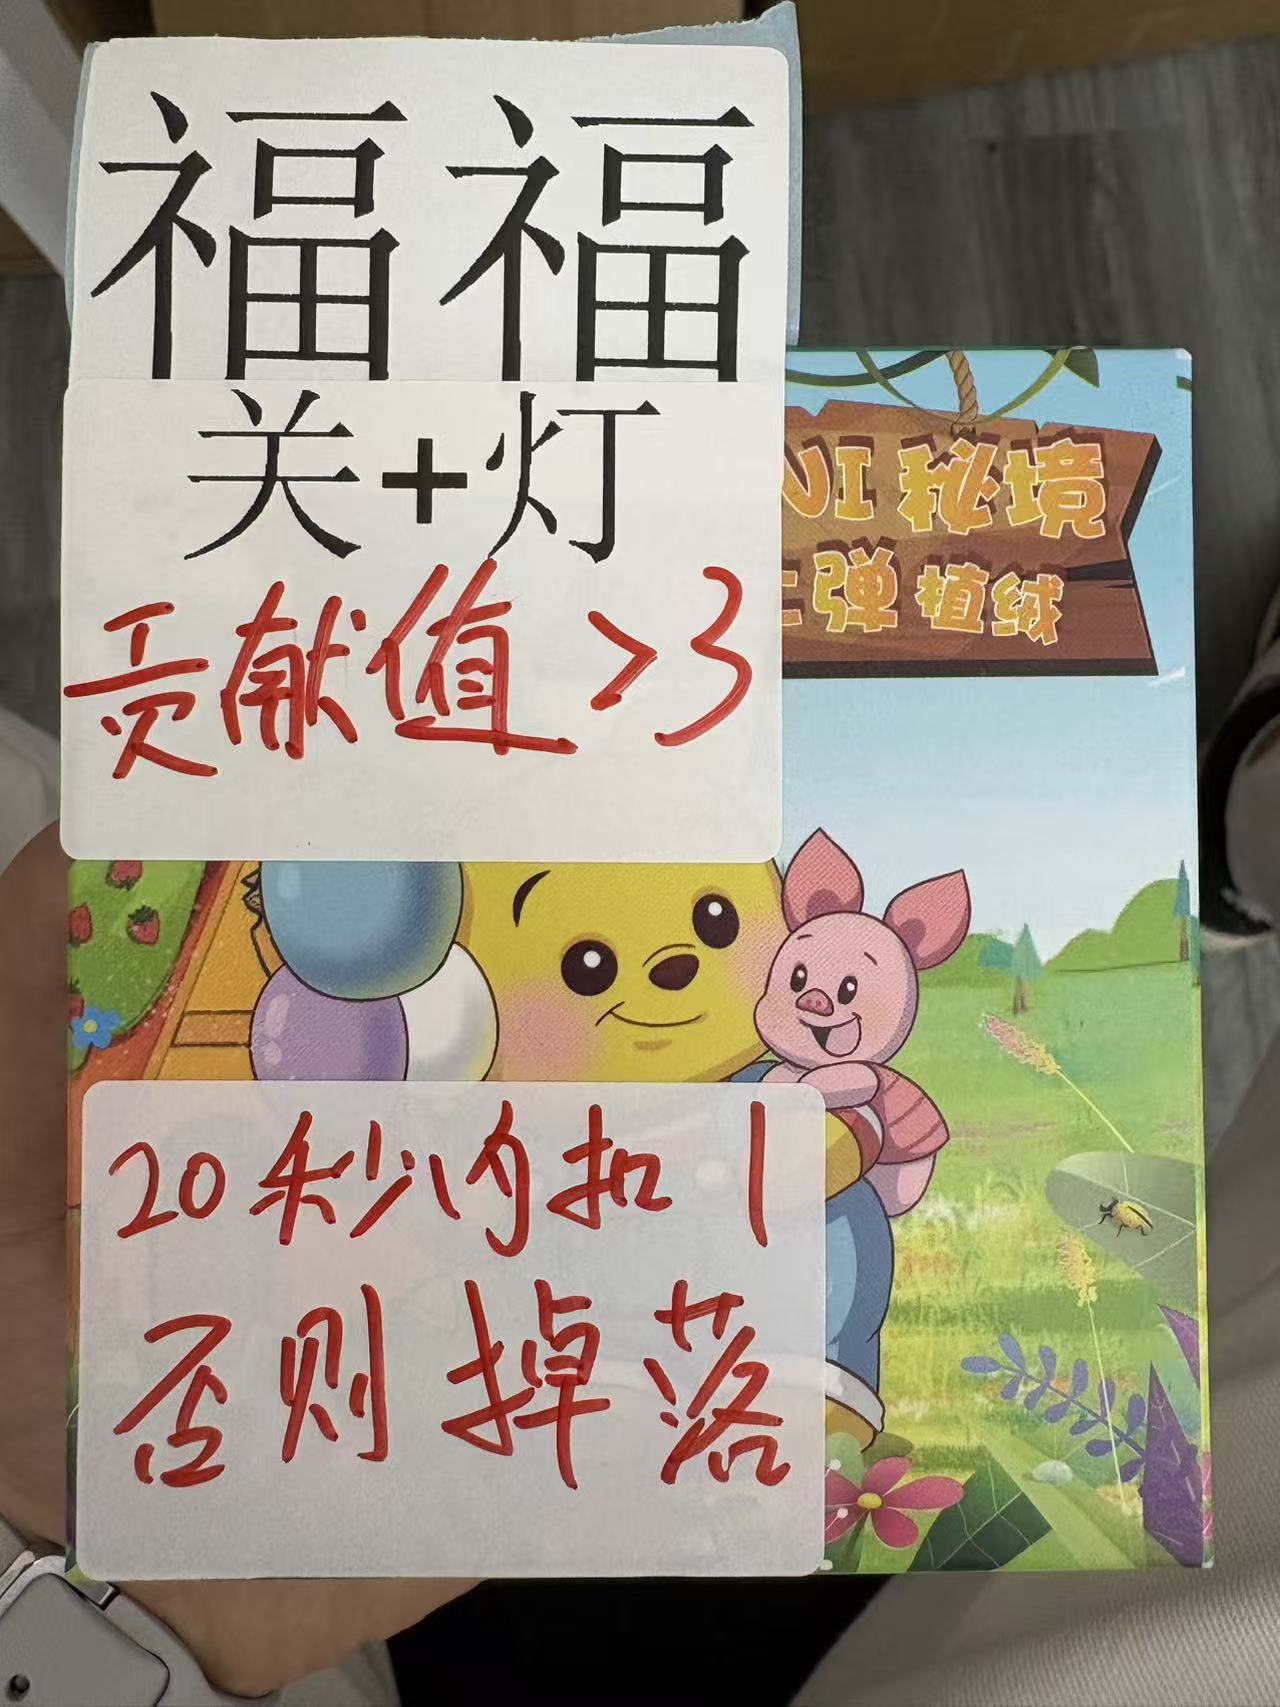 福福
关+灯
贡献值>3
NI秘境
弹植绒
20秒内扣1
否则掉落